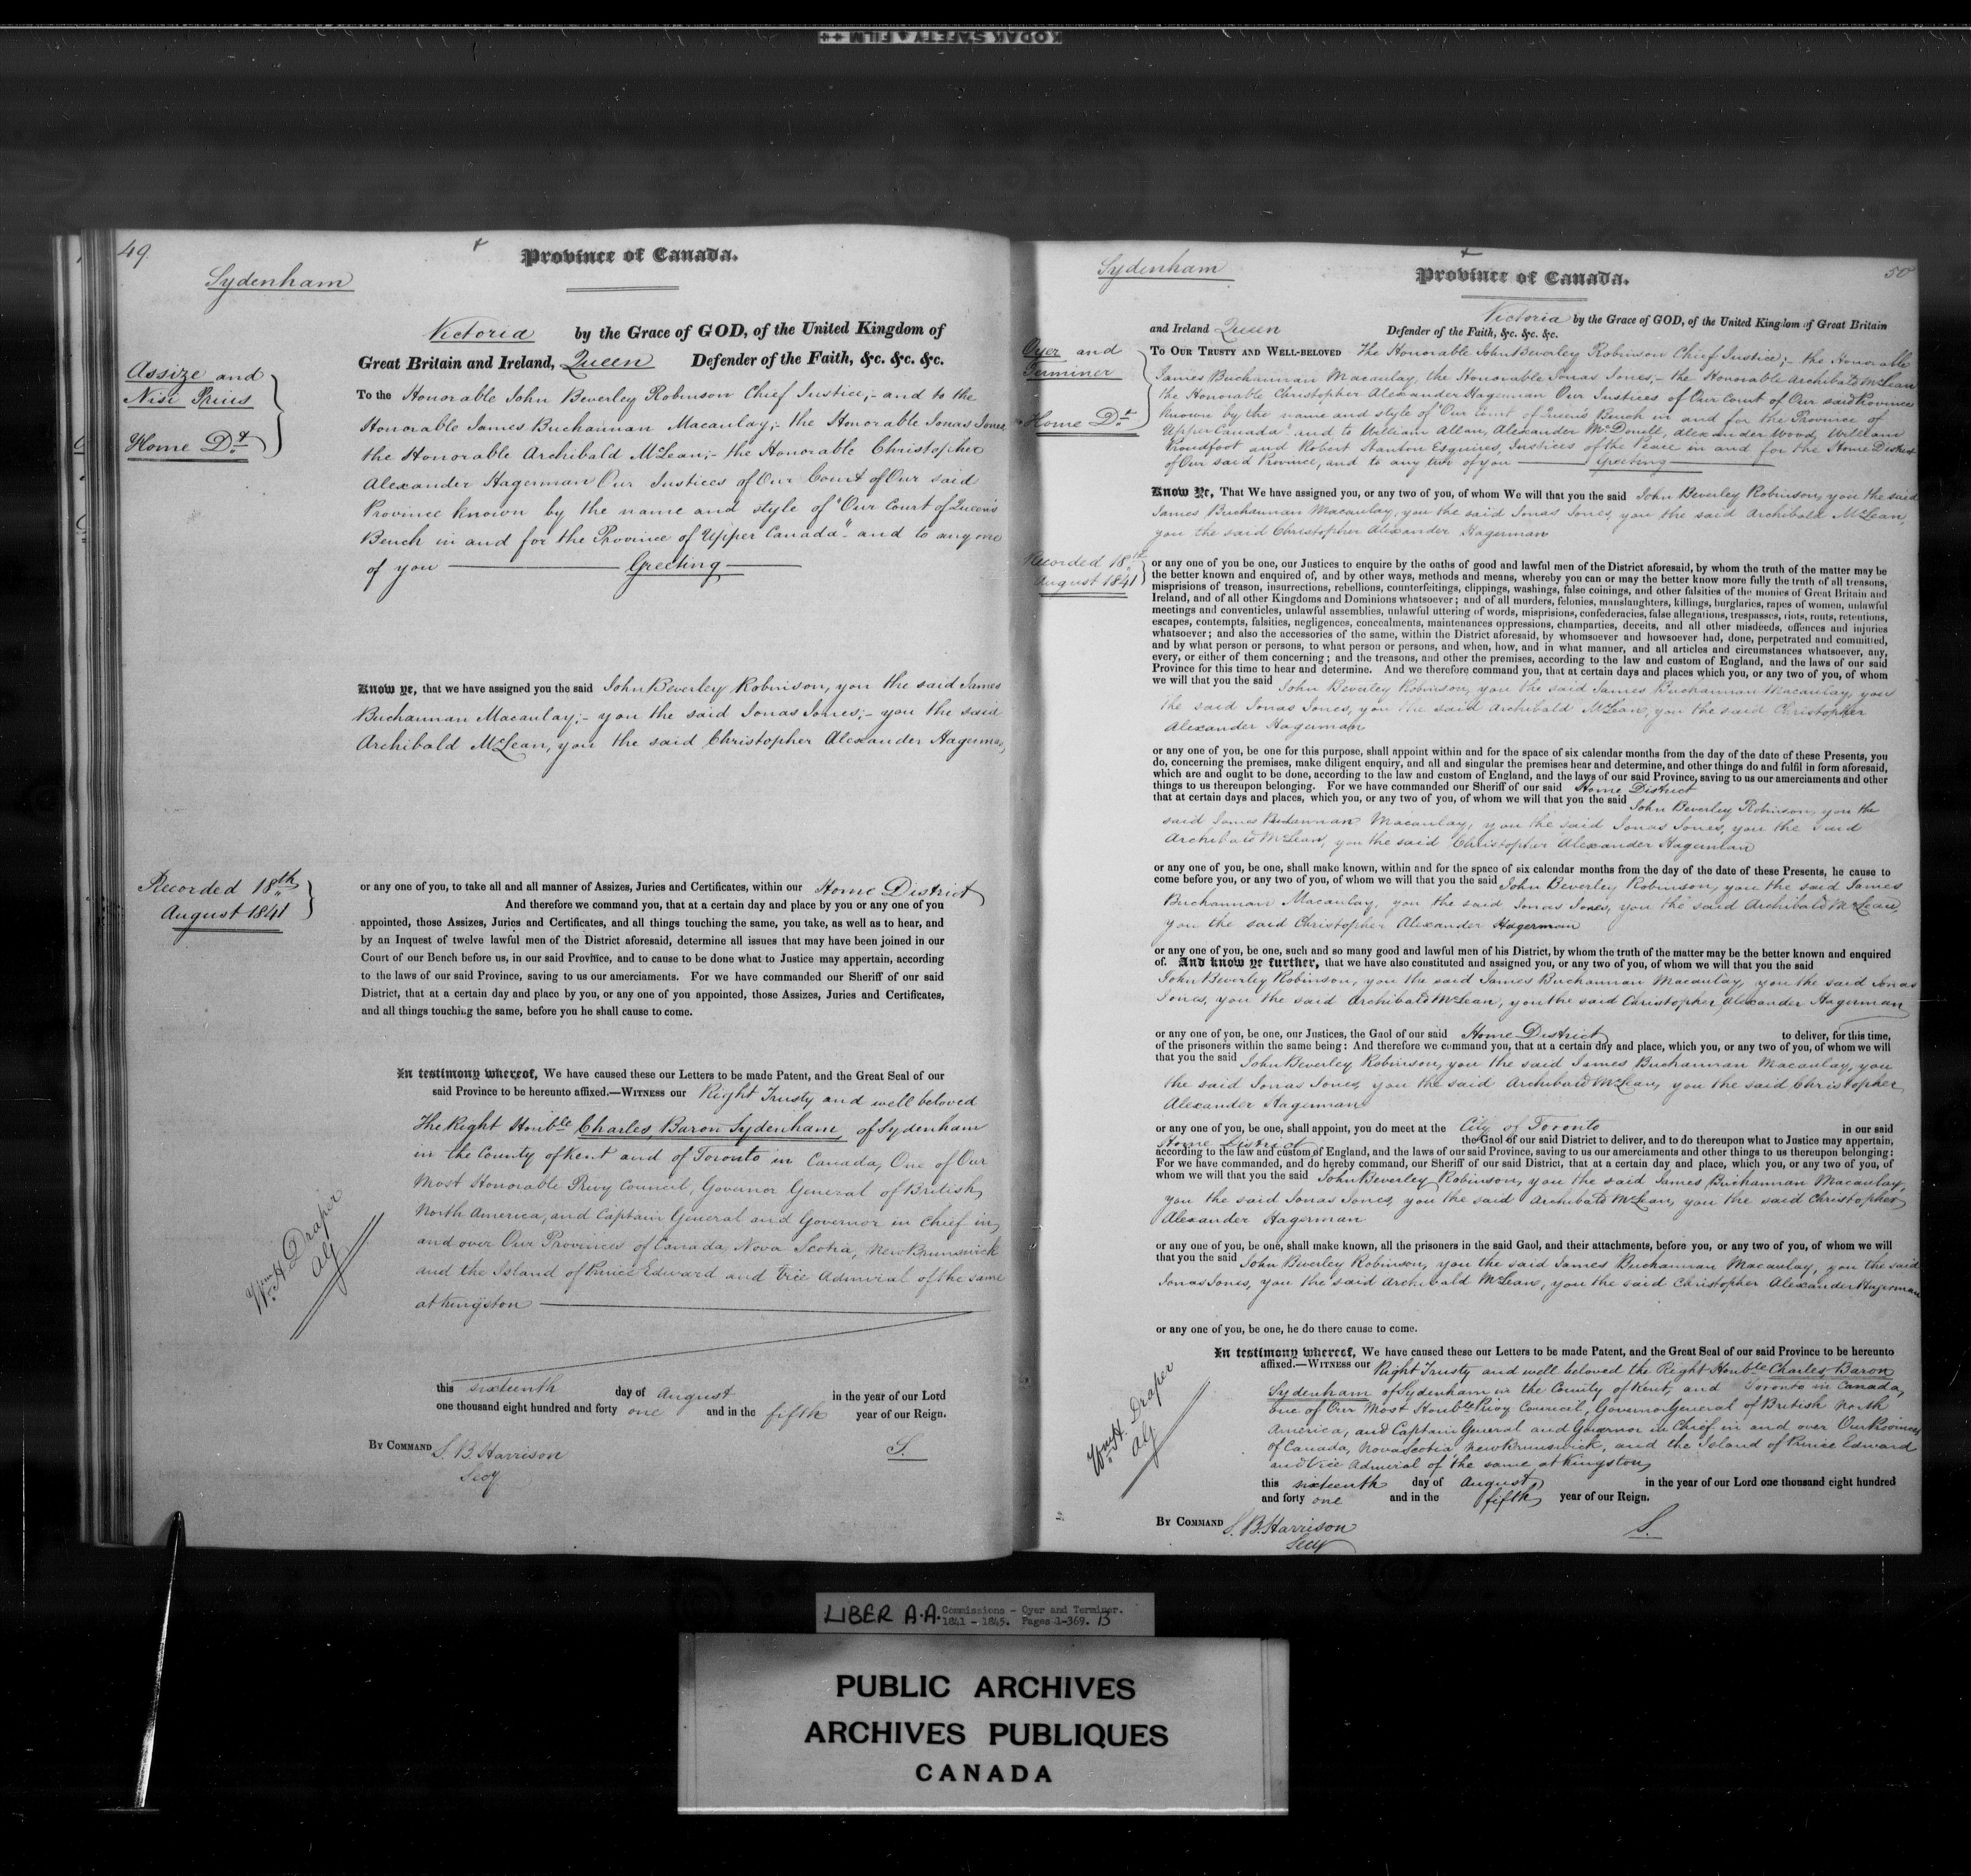 KODAK SAFETY FILM
49
Province of Canada.
Sydenham
Victoria by the Grace of GOD, of the United Kingdom of
Great Britain and Ireland, Queen Defender of the Faith, &c. &c. &c.
Assize and
Nisi Prius
Home Dt.
To the Honorable John Beverley Robinson Chief Justice;- and to the
Honorable James Buchannan Macaulay;- the Honorable Jonas Jones
the Honorable Archibald McLean;- the Honorable Christopher
Alexander Hagerman Our Justices of Our Court of Our said
Province known by the name and style of "Our Court of Queen's
Bench in and for the Province of Upper Canada" and to any one
of you Greeting
Know ye, that we have assigned you the said John Beverley Robinson, you the said James
Buchannan Macaulay;- you the said Jonas Jones;- you the said
Archibald McLean, you the said Christopher Alexander Hagerman,
Recorded 18th
August 1841
or any one of you, to take all and all manner of Assizes, Juries and Certificates, within our Home District
And therefore we command you, that at a certain day and place by you or any one of you
appointed, those Assizes, Juries and Certificates, and all things touching the same, you take, as well as to hear, and
by an Inquest of twelve lawful men of the District aforesaid, determine all issues that may have been joined in our
Court of our Bench before us, in our said Province, and to cause to be done what to Justice may appertain, according
to the laws of our said Province, saving to us our amerciaments. For we have commanded our Sheriff of our said
District, that at a certain day and place by you, or any one of you appointed, those Assizes, Juries and Certificates,
and all things touching the same, before you he shall cause to come.
In testimony whereof, We have caused these our Letters to be made Patent, and the Great Seal of our
said Province to be hereunto affixed.—WITNESS our Right Trusty and well beloved
The Right Honble Charles, Baron Sydenham, of Sydenham
in the County of Kent and of Toronto in Canada, One of Our
Most Honorable Privy Council, Governor General of British
North America, and Captain General and Governor in Chief in
and over Our Provinces of Canada, Nova Scotia, New Brunswick
and the Island of Prince Edward and Vice Admiral of the same
at Kingston
Wm. H. Draper
AG
this sixteenth day of August in the year of our Lord
one thousand eight hundred and forty one and in the fifth year of our Reign.
BY COMMAND S. B. Harrison
Secy
S.
50
Province of Canada.
Sydenham
Victoria by the Grace of GOD, of the United Kingdom of Great Britain
and Ireland Queen Defender of the Faith, &c. &c. &c.
Oyer and
Terminer
Home Dt.
TO OUR TRUSTY AND WELL-BELOVED The Honorable John Beverley Robinson Chief Justice;- the Honorable
James Buchannan Macaulay, the Honorable Jonas Jones,- the Honorable Archibald McLean
the Honorable Christopher Alexander Hagerman Our Justices of Our Court of Our said Province
known by the name and style of "Our Court of Queen's Bench in and for the Province of
Upper Canada" and to William Allan, Alexander McDonell, Alexander Wood, William
Proudfoot and Robert Stanton Esquires, Justices of the Peace in and for the Home District
of Our said Province, and to any two of you Greeting
Know Ye, That We have assigned you, or any two of you, of whom We will that you the said John Beverley Robinson, you the said
James Buchannan Macaulay, you the said Jonas Jones, you the said Archibald McLean,
you the said Christopher Alexander Hagerman
Recorded 18th
August 1841
or any one of you be one, our Justices to enquire by the oaths of good and lawful men of the District aforesaid, by whom the truth of the matter may be
the better known and enquired of, and by other ways, methods and means, whereby you can or may the better know more fully the truth of all treasons,
misprisions of treason, insurrections, rebellions, counterfeitings, clippings, washings, false coinings, and other falsities of the monies of Great Britain and
Ireland, and of all other Kingdoms and Dominions whatsoever; and of all murders, felonies, manslaughters, killings, burglaries, rapes of women, unlawful
meetings and conventicles, unlawful assemblies, unlawful uttering of words, misprisions, confederacies, false allegations, trespasses, riots, routs, retentions,
escapes, contempts, falsities, negligences, concealments, maintenances oppressions, champarties, deceits, and all other misdeeds, offences and injuries
whatsoever; and also the accessories of the same, within the District aforesaid, by whomsoever and howsoever had, done, perpetrated and committed,
and by what person or persons, to what person or persons, and when, how, and in what manner, and all articles and circumstances whatsoever, any,
every, or either of them concerning; and the treasons, and other the premises, according to the law and custom of England, and the laws of our said
Province for this time to hear and determine. And we therefore command you, that at certain days and places which you, or any two of you, of whom
we will that you the said John Beverley Robinson, you the said James Buchannan Macaulay, you
the said Jonas Jones, you the said Archibald McLean, you the said Christopher
Alexander Hagerman
or any one of you, be one for this purpose, shall appoint within and for the space of six calendar months from the day of the date of these Presents, you
do, concerning the premises, make diligent enquiry, and all and singular the premises hear and determine, and other things do and fulfil in form aforesaid,
which are and ought to be done, according to the law and custom of England, and the laws of our said Province, saving to us our amerciaments and other
things to us thereupon belonging. For we have commanded our Sheriff of our said Home District
that at certain days and places, which you, or any two of you, of whom we will that you the said John Beverley Robinson, you the
said James Buchannan Macaulay, you the said Jonas Jones, you the said
Archibald McLean, you the said Christopher Alexander Hagerman
or any one of you, be one, shall make known, within and for the space of six calendar months from the day of the date of these Presents, he cause to
come before you, or any two of you, of whom we will that you the said John Beverley Robinson, you the said James
Buchannan Macaulay, you the said Jonas Jones, you the said Archibald McLean,
you the said Christopher Alexander Hagerman
or any one of you, be one, such and so many good and lawful men of his District, by whom the truth of the matter may be the better known and enquired
of. And know ye further, that we have also constituted and assigned you, or any two of you, of whom we will that you the said
John Beverley Robinson, you the said James Buchannan Macaulay, you the said Jonas
Jones, you the said Archibald McLean, you the said Christopher Alexander Hagerman
or any one of you, be one, our Justices, the Gaol of our said Home District to deliver, for this time,
of the prisoners within the same being: And therefore we command you, that at a certain day and place, which you, or any two of you, of whom we will
that you the said John Beverley Robinson, you the said James Buchannan Macaulay, you
the said Jonas Jones, you the said Archibald McLean, you the said Christopher
Alexander Hagerman
or any one of you, be one, shall appoint, you do meet at the City of Toronto in our said
Home District the Gaol of our said District to deliver, and to do thereupon what to Justice may appertain,
according to the law and custom of England, and the laws of our said Province, saving to us our amerciaments and other things to us thereupon belonging:
For we have commanded, and do hereby command, our Sheriff of our said District, that at a certain day and place, which you, or any two of you, of
whom we will that you the said John Beverley Robinson, you the said James Buchannan Macaulay,
you the said Jonas Jones, you the said Archibald McLean, you the said Christopher
Alexander Hagerman
or any one of you, be one, shall make known, all the prisoners in the said Gaol, and their attachments, before you, or any two of you, of whom we will
that you the said John Beverley Robinson, you the said James Buchannan Macaulay, you the said
Jonas Jones, you the said Archibald McLean, you the said Christopher Alexander Hagerman
or any one of you, be one, he do there cause to come.
In testimony whereof, We have caused these our Letters to be made Patent, and the Great Seal of our said Province to be hereunto
affixed.—WITNESS our Right Trusty and well beloved the Right Honble Charles, Baron
Sydenham of Sydenham in the County of Kent, and Toronto in Canada,
One of Our Most Honble Privy Council, Governor General of British North
America, and Captain General and Governor in Chief in and over Our Provinces
of Canada, Nova Scotia, New Brunswick, and the Island of Prince Edward
and Vice Admiral of the same at Kingston,
Wm. H. Draper
AG
this sixteenth day of August in the year of our Lord one thousand eight hundred
and forty one and in the fifth year of our Reign.
BY COMMAND S. B. Harrison
Secy
S.
LIBER A.A. Commissions - Oyer and Terminer.
1841 - 1845. Pages 1-369. B
PUBLIC ARCHIVES
ARCHIVES PUBLIQUES
CANADA